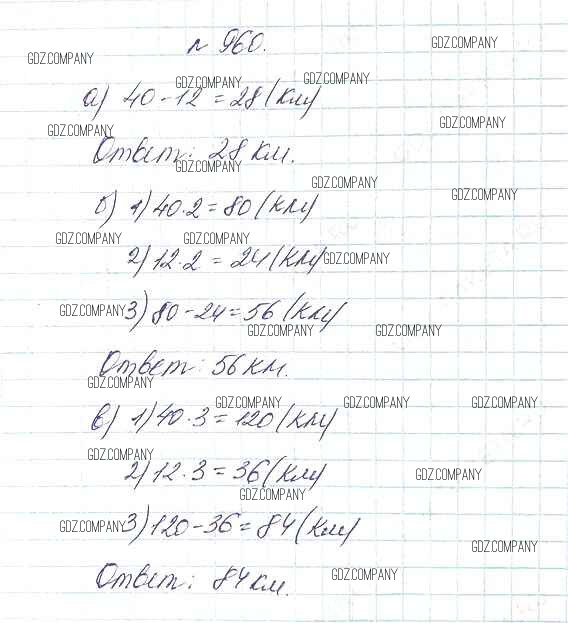 № 960.
GDZ.COMPANY GDZ.COMPANY
GDZ.COMPANY GDZ.COMPANY
а) 40 - 12 = 28 (км)
GDZ.COMPANY GDZ.COMPANY
Ответ: 28 км.
GDZ.COMPANY
GDZ.COMPANY GDZ.COMPANY
б) 1) 40 · 2 = 80 (км)
GDZ.COMPANY GDZ.COMPANY
2) 12 · 2 = 24 (км) GDZ.COMPANY
GDZ.COMPANY 3) 80 - 24 = 56 (км)
GDZ.COMPANY GDZ.COMPANY
Ответ: 56 км.
GDZ.COMPANY
GDZ.COMPANY GDZ.COMPANY GDZ.COMPANY
в) 1) 40 · 3 = 120 (км)
GDZ.COMPANY
2) 12 · 3 = 36 (км) GDZ.COMPANY
GDZ.COMPANY
GDZ.COMPANY 3) 120 - 36 = 84 (км)
GDZ.COMPANY
Ответ: 84 км. GDZ.COMPANY